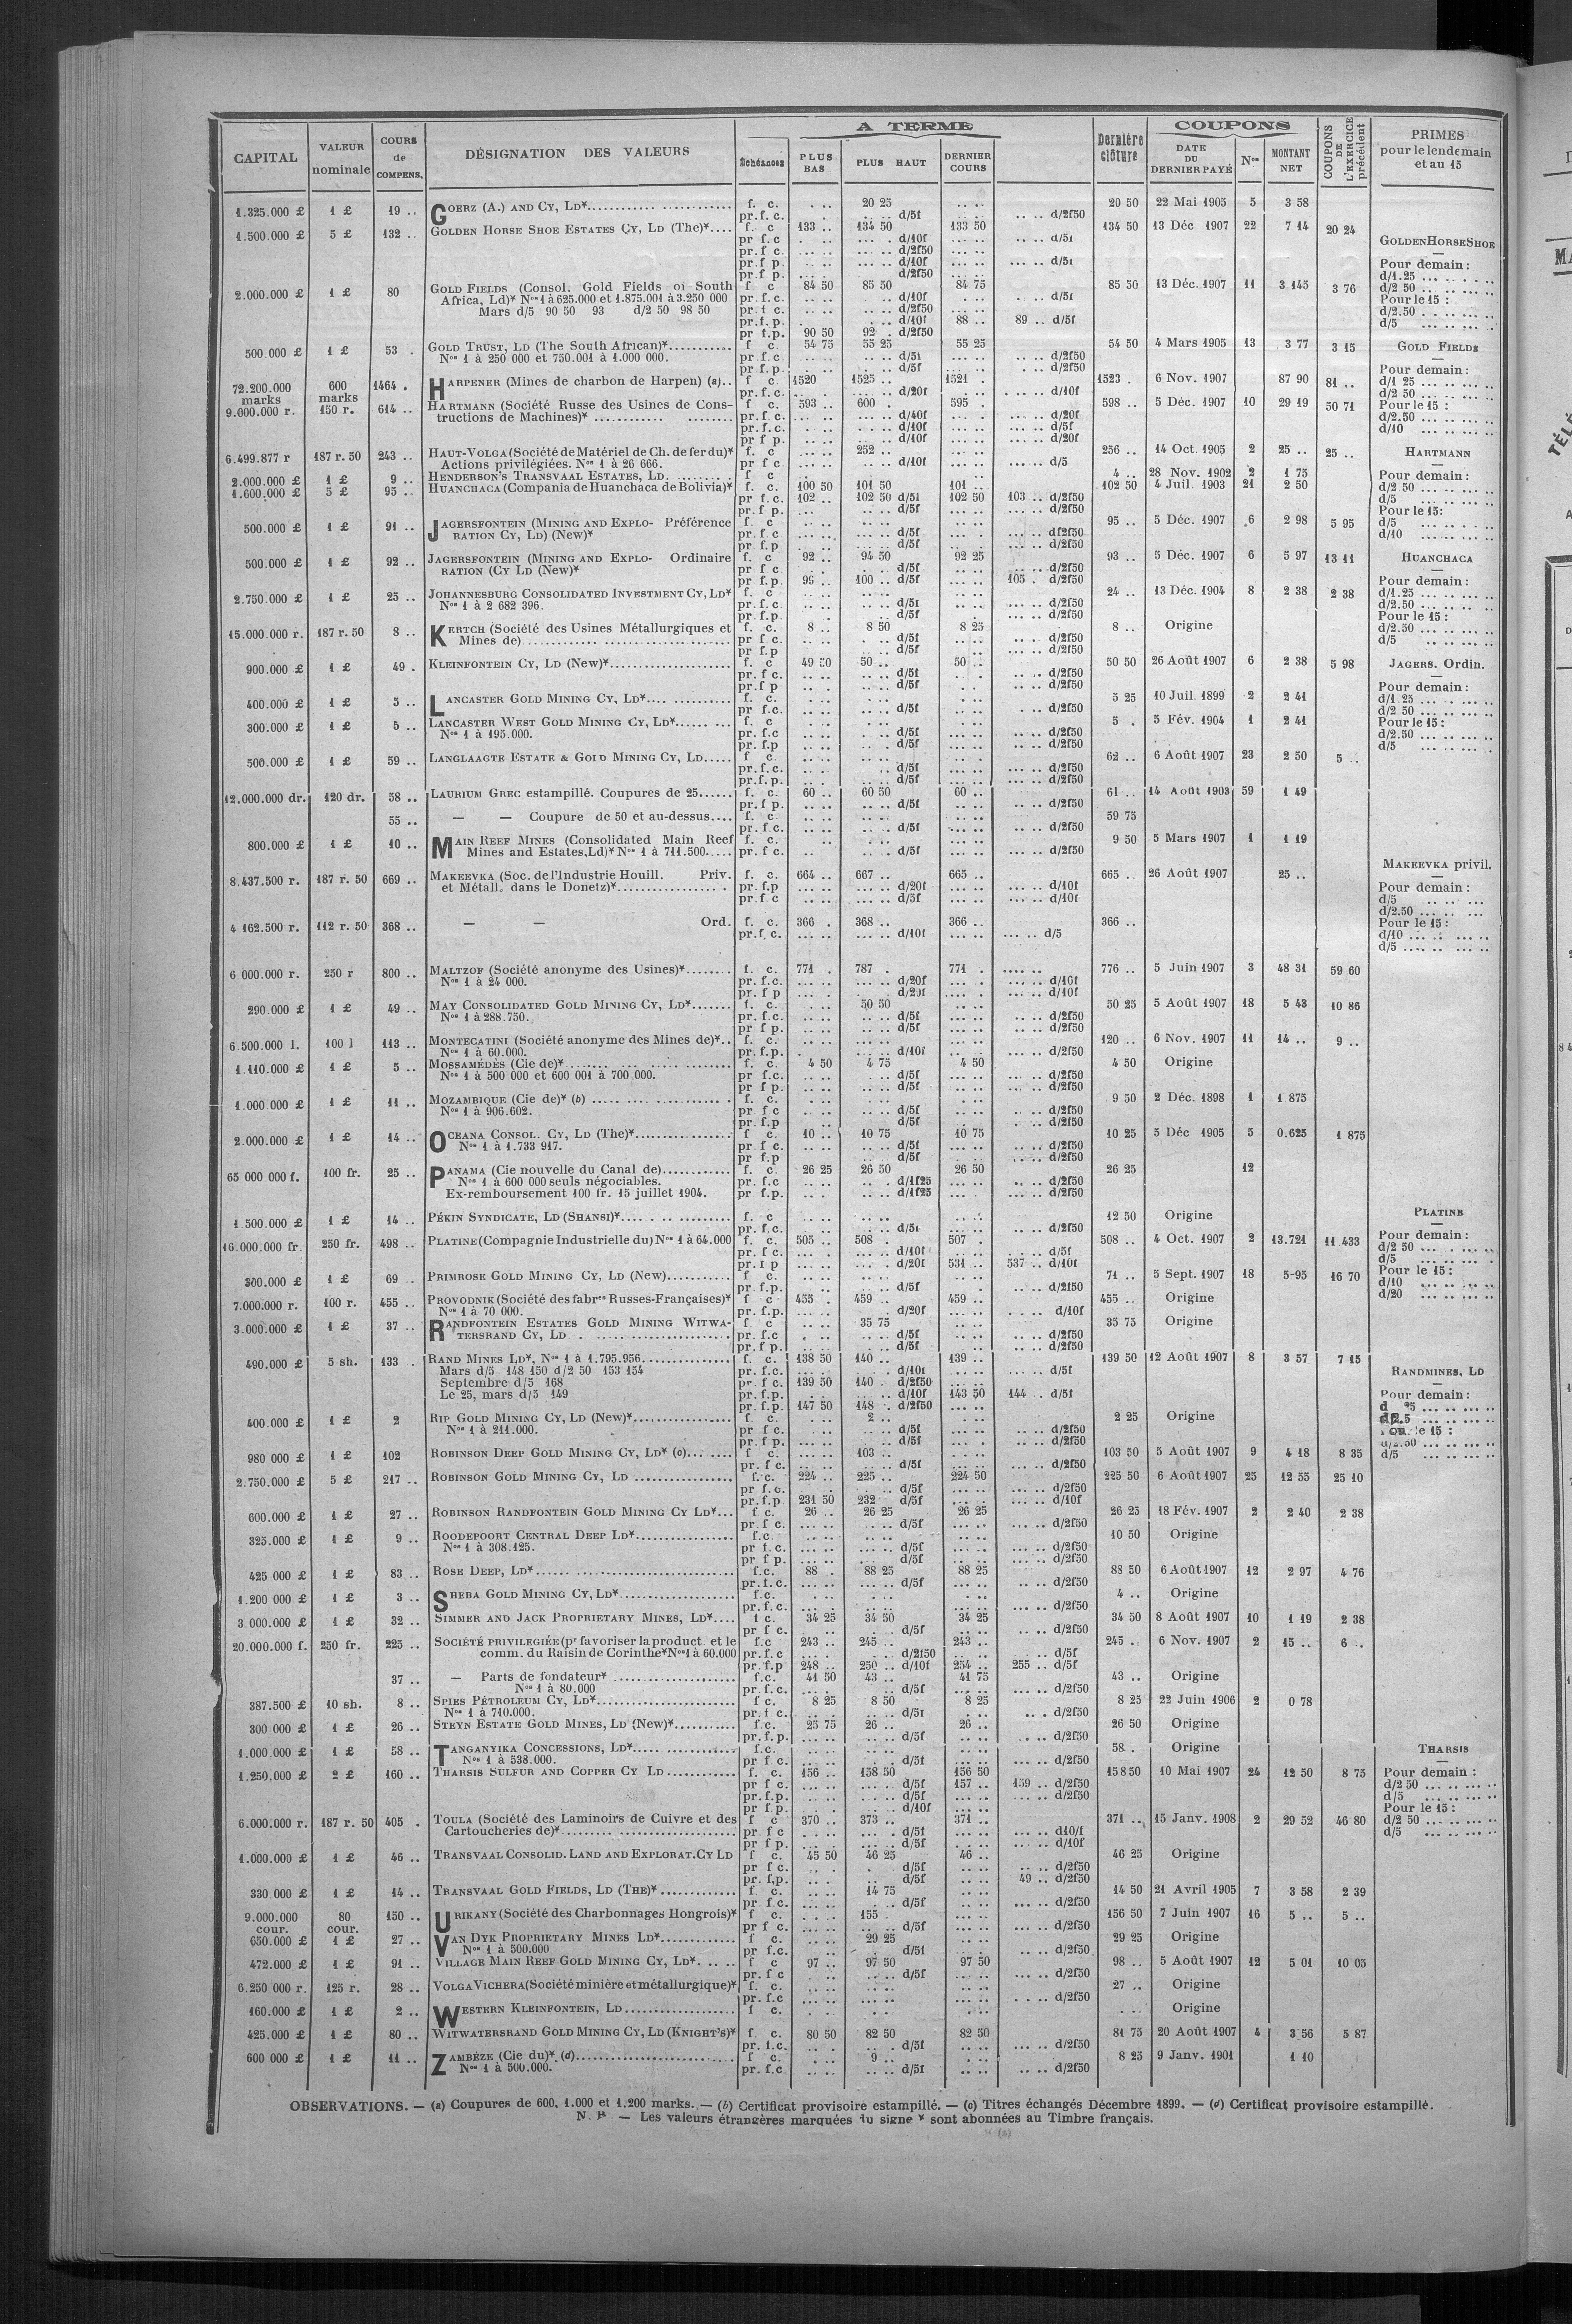 CAPITAL | VALEUR nominale | COURS de COMPENS. | DÉSIGNATION DES VALEURS | A TERME | Dernière clôture | COUPONS | COUPONS DE L'EXERCICE précédent | PRIMES pour le lendemain et au 15
Échéances | PLUS BAS | PLUS HAUT | DERNIER COURS | DATE DU DERNIER PAYÉ | Nos | MONTANT NET
1.325.000 £ | 1 £ | 19 .. | GOERZ (A.) AND CY, LD* | f. c. | 20 25 | 20 50 | 22 Mai 1905 | 5 | 3 58
pr.f.c. | d/5f | d/2f50
1.500.000 £ | 5 £ | 132 .. | GOLDEN HORSE SHOE ESTATES CY, LD (The)* | f. c | 133 .. | 134 50 | 133 50 | 134 50 | 13 Déc 1907 | 22 | 7 14 | 20 24
pr f.c | d/10f | d/5f
pr.f c. | d/2f50
pr.f p. | d/10f | d/5f
pr.f p. | d/2f50
2.000.000 £ | 1 £ | 80 | GOLD FIELDS (Consol. Gold Fields of South | f c | 84 50 | 85 50 | 84 75 | 85 50 | 13 Déc. 1907 | 11 | 3 145 | 3 76
Africa, Ld)* Nos 1 à 625.000 et 1.875.001 à 3.250 000 | pr.f.c. | d/10f | d/5f
Mars d/5 90 50 93 d/2 50 98 50 | pr.f c. | d/2f50
pr.f.p. | d/10f | 88 .. | 89 .. d/5f
pr f.p. | 90 50 | 92 . d/2f50
500.000 £ | 1 £ | 53 . | GOLD TRUST, LD (The South African)* | f c. | 54 75 | 55 25 | 55 25 | 54 50 | 4 Mars 1905 | 13 | 3 77 | 3 15
Nos 1 à 250 000 et 750.001 à 1.000 000. | pr.f c | d/5f | d/2f50
pr.f p. | d/5f | d/2f50
72.200.000 marks | 600 marks | 1464 . | HARPENER (Mines de charbon de Harpen) (a).. | f c. | 1520 | 1525 .. | 1521 . | 1523 . | 6 Nov. 1907 | 87 90 | 81 ..
pr.f.c. | d/20f | d/10f
9.000.000 r. | 150 r. | 614 .. | HARTMANN (Société Russe des Usines de Cons- | f c. | 593 .. | 600 . | 595 . | 598 .. | 5 Déc. 1907 | 10 | 29 19 | 50 71
tructions de Machines)* | pr.f.c. | d/40f | d/20f
pr.f.c. | d/10f | d/5f
pr f p. | d/10f | d/20f
6.499.877 r | 187 r. 50 | 243 .. | HAUT-VOLGA (Société de Matériel de Ch. de fer du)* | f. c | 252 .. | 256 .. | 14 Oct. 1905 | 2 | 25 .. | 25 ..
Actions privilégiées. Nos 1 à 26 666. | pr f c | d/10f | d/5
2.000.000 £ | 1 £ | 9 .. | HENDERSON'S TRANSVAAL ESTATES, LD. | f c | 4 .. | 28 Nov. 1902 | 2 | 1 75
1.600.000 £ | 5 £ | 95 .. | HUANCHACA (Compania de Huanchaca de Bolivia)* | f. c. | 100 50 | 101 50 | 101 .. | 102 50 | 4 Juil. 1903 | 21 | 2 50
pr f.c. | 102 .. | 102 50 d/5f | 102 50 | 103 .. d/2f50
pr.f p. | d/5f | d/2f50
500.000 £ | 1 £ | 91 .. | JAGERSFONTEIN (MINING AND EXPLO- Préférence | f. c | 95 .. | 5 Déc. 1907 | 6 | 2 98 | 5 95
RATION CY, LD) (New)* | pr. f c | d/5f | d/2f50
pr. f.p | d/5f | d/2f50
500.000 £ | 1 £ | 92 .. | JAGERSFONTEIN (MINING AND EXPLO- Ordinaire | f. c | 92 .. | 94 50 | 92 25 | 93 .. | 5 Déc. 1907 | 6 | 5 97 | 13 11
RATION (CY LD (New)* | pr f c | d/5f | d/2f50
pr f.p. | 100 .. d/5f | 105 . d/2f50
2.750.000 £ | 1 £ | 25 .. | JOHANNESBURG CONSOLIDATED INVESTMENT CY, LD* | f. c | 24 .. | 13 Déc. 1904 | 8 | 2 38 | 2 38
Nos 1 à 2 682 396. | pr.f.c. | d/5f | d/2f50
pr.f.p. | d/5f | d/2f50
15.000.000 r. | 187 r. 50 | 8 .. | KERTCH (Société des Usines Métallurgiques et | f. c. | 8 .. | 8 50 | 8 25 | 8 .. | Origine
Mines de) | pr f c. | d/5f | d/2f50
pr f.p | d/5f | d/2f50
900.000 £ | 1 £ | 49 . | KLEINFONTEIN CY, LD (New)* | f. c | 49 50 | 50 .. | 50 .. | 50 50 | 26 Août 1907 | 6 | 2 38 | 5 98
pr. f c. | d/5f | d/2f50
pr.f p | d/5f | d/2f50
400.000 £ | 1 £ | 5 .. | LANCASTER GOLD MINING CY, LD* | f. c. | 5 25 | 10 Juil. 1899 | 2 | 2 41
pr f.c. | d/5f | d/2f50
300.000 £ | 1 £ | 5 .. | LANCASTER WEST GOLD MINING CY, LD* | f. c | 5 . | 5 Fév. 1904 | 1 | 2 41
Nos 1 à 195.000. | pr. f.c | d/5f | d/2f50
pr f.p | d/5f | d/2f50
500.000 £ | 1 £ | 59 .. | LANGLAAGTE ESTATE & GOLD MINING CY, LD | f c | 62 .. | 6 Août 1907 | 23 | 2 50 | 5 ..
pr.f.c. | d/5f | d/2f50
pr.f.p. | d/5f | d/2f50
12.000.000 dr. | 120 dr. | 58 .. | LAURIUM GREC estampillé. Coupures de 25 | f. c. | 60 .. | 60 50 | 60 .. | 61 .. | 14 Août 1903 | 59 | 1 49
pr.f p. | d/5f | d/2f50
55 .. | — — Coupure de 50 et au-dessus | f. c. | 59 75
pr. f.c. | d/5f | d/2f50
800.000 £ | 1 £ | 10 .. | MAIN REEF MINES (Consolidated Main Reef | f. c. | 9 50 | 5 Mars 1907 | 1 | 1 19
Mines and Estates, Ld)* Nos 1 à 711.500 | pr. f c. | d/5f | d/2f50
8.437.500 r. | 187 r. 50 | 669 .. | MAKEEVKA (Soc. de l'Industrie Houill. Priv. | f. c. | 664 .. | 667 .. | 665 .. | 665 .. | 26 Août 1907 | 25 ..
et Métall. dans le Donetz)* | pr. f.p | d/20f | d/10f
pr.f c | d/5f | d/10f
4 162.500 r. | 112 r. 50 | 368 .. | — — Ord. | f. c. | 366 . | 368 .. | 366 .. | 366 ..
pr.f. c. | d/10f | d/5
6 000.000 r. | 250 r | 800 .. | MALTZOF (Société anonyme des Usines)* | f. c. | 771 . | 787 . | 771 . | 776 .. | 5 Juin 1907 | 3 | 48 31 | 59 60
Nos 1 à 24 000. | pr. f.c. | d/20f | d/10f
pr. f p | d/20f | d/10f
290.000 £ | 1 £ | 49 .. | MAY CONSOLIDATED GOLD MINING CY, LD* | f. c. | 50 50 | 50 25 | 5 Août 1907 | 18 | 5 43 | 10 86
Nos 1 à 288.750. | pr. f.c. | d/5f | d/2f50
pr f p. | d/5f | d/2f50
6.500.000 l. | 100 l | 113 .. | MONTECATINI (Société anonyme des Mines de)* | f. c. | 120 .. | 6 Nov. 1907 | 11 | 14 .. | 9 ..
Nos 1 à 60.000. | pr.f.p. | d/10f | d/2f50
1.110.000 £ | 1 £ | 5 .. | MOSSAMÉDÈS (Cie de)* | f. c. | 4 50 | 4 75 | 4 50 | 4 50 | Origine
Nos 1 à 500 000 et 600 001 à 700 000. | pr f.c. | d/5f | d/2f50
pr f p. | d/5f | d/2f50
1.000.000 £ | 1 £ | 11 .. | MOZAMBIQUE (Cie de)* (b) | f. c. | 9 50 | 2 Déc. 1898 | 1 | 1 875
Nos 1 à 906.602. | pr f c | d/5f | d/2f50
pr. f.p | d/5f | d/2f50
2.000.000 £ | 1 £ | 14 .. | OCEANA CONSOL. CY, LD (The)* | f c. | 10 .. | 10 75 | 10 75 | 10 25 | 5 Déc 1905 | 5 | 0.625 | 1 875
Nos 1 à 1.733 917. | pr f c. | d/5f | d/2f50
pr f.p | d/5f | d/2f50
65 000 000 f. | 100 fr. | 25 .. | PANAMA (Cie nouvelle du Canal de) | f. c. | 26 25 | 26 50 | 26 50 | 26 25 | 12
Nos 1 à 600 000 seuls négociables. | pr. f.c | d/1f25 | d/2f50
Ex-remboursement 100 fr. 15 juillet 1904. | pr f.p. | d/1f25 | d/2f50
1.500.000 £ | 1 £ | 14 .. | PÉKIN SYNDICATE, LD (SHANSI)* | f. c | 12 50 | Origine
pr. f.c. | d/5f | d/2f50
16.000.000 fr. | 250 fr. | 498 .. | PLATINE (Compagnie Industrielle du) Nos 1 à 64.000 | f. c. | 505 .. | 508 . | 507 . | 508 .. | 4 Oct. 1907 | 2 | 13.721 | 11 433
pr f c. | d/10f | d/5f
pr. f p | d/20f | 531 .. | 537 .. d/10f
300.000 £ | 1 £ | 69 .. | PRIMROSE GOLD MINING CY, LD (New) | f c. | 71 .. | 5 Sept. 1907 | 18 | 5-95 | 16 70
pr.f.p. | d/5f | d/2f50
7.000.000 r. | 100 r. | 455 .. | PROVODNIK (Société des fabres Russes-Françaises)* | f c | 455 . | 459 .. | 459 .. | 455 .. | Origine
Nos 1 à 70 000. | pr. f.p. | d/20f | d/10f
3.000.000 £ | 1 £ | 37 .. | RANDFONTEIN ESTATES GOLD MINING WITWA- | f c | 35 75 | 35 75 | Origine
TERSRAND CY, LD | pr. f.c | d/5f | d/2f50
pr f p. | d/5f | d/2f50
490.000 £ | 5 sh. | 133 . | RAND MINES LD*, Nos 1 à 1.795.956 | f. c. | 138 50 | 140 .. | 139 .. | 139 50 | 12 Août 1907 | 8 | 3 57 | 7 15
Mars d/5 148 150 d/2 50 153 154 | pr. f.c. | d/10f | d/5f
Septembre d/5 168 | pr. f c. | 139 50 | 140 . d/2f50
Le 25, mars d/5 149 | pr. f.p. | d/10f | 143 50 | 144 .. d/5f
pr. f.p. | 147 50 | 148 . d/2f50
400.000 £ | 1 £ | 2 | RIP GOLD MINING CY, LD (New)* | f. c. | 2 .. | 2 25 | Origine
Nos 1 à 211.000. | pr f c. | d/5f | d/2f50
pr. f p. | d/5f | d/2f50
980 000 £ | 1 £ | 102 | ROBINSON DEEP GOLD MINING CY, LD* (c) | f c. | 103 .. | 103 50 | 5 Août 1907 | 9 | 4 18 | 8 35
pr. f c. | d/5f | d/2f50
2.750.000 £ | 5 £ | 217 .. | ROBINSON GOLD MINING CY, LD | f. c. | 224 .. | 225 .. | 224 50 | 225 50 | 6 Août 1907 | 25 | 12 55 | 25 10
pr f.c. | d/5f | d/2f50
pr.f.p | 231 50 | 232 . d/5f | d/10f
600.000 £ | 1 £ | 27 .. | ROBINSON RANDFONTEIN GOLD MINING CY LD* | f c. | 26 .. | 26 25 | 26 25 | 26 25 | 18 Fév. 1907 | 2 | 2 40 | 2 38
pr. f c. | d/5f | d/2f50
325.000 £ | 1 £ | 9 .. | ROODEPOORT CENTRAL DEEP LD* | f.c. | 10 50 | Origine
Nos 1 à 308.125. | pr f.c. | d/5f | d/2f50
pr f p. | d/5f | d/2f50
425 000 £ | 1 £ | 83 .. | ROSE DEEP, LD* | f.c. | 88 . | 88 25 | 88 25 | 88 50 | 6 Août 1907 | 12 | 2 97 | 4 76
pr.f.c. | d/5f | d/2f50
1.200 000 £ | 1 £ | 3 .. | SHEBA GOLD MINING CY, LD* | f.c. | 4 .. | Origine
pr.f.c. | d/2f50
3.000.000 £ | 1 £ | 32 .. | SIMMER AND JACK PROPRIETARY MINES, LD* | f c. | 34 25 | 34 50 | 34 25 | 34 50 | 8 Août 1907 | 10 | 1 19 | 2 38
pr f c. | d/5f | d/2f50
20.000.000 f. | 250 fr. | 225 .. | SOCIÉTÉ PRIVILEGIÉE (pr favoriser la product. et le | f.c | 243 .. | 245 .. | 243 .. | 245 .. | 6 Nov. 1907 | 2 | 15 .. | 6 ..
comm. du Raisin de Corinthe* Nos 1 à 60.000 | pr.f.c | d/2f50 | d/5f
pr.f.p | 248 .. | 250 .. d/10f | 254 .. | 255 .. d/5f
37 .. | — Parts de fondateur* | f.c. | 41 50 | 43 .. | 41 75 | 43 .. | Origine
Nos 1 à 80.000 | pr. f.c. | d/5f | d/2f50
387.500 £ | 10 sh. | 8 .. | SPIES PÉTROLEUM CY, LD* | f c. | 8 25 | 8 50 | 8 25 | 8 25 | 22 Juin 1906 | 2 | 0 78
Nos 1 à 710.000. | pr.f c. | d/5f | d/2f50
300 000 £ | 1 £ | 26 .. | STEYN ESTATE GOLD MINES, LD (New)* | f.c. | 25 75 | 26 .. | 26 .. | 26 50 | Origine
pr.f.p. | d/5f | d/2f50
1.000.000 £ | 1 £ | 58 .. | TANGANYIKA CONCESSIONS, LD* | f.c. | 58 . | Origine
Nos 1 à 538.000. | pr f c. | d/5f | d/2f50
1.250.000 £ | 2 £ | 160 .. | THARSIS SULFUR AND COPPER CY LD | f. c. | 156 .. | 158 50 | 156 50 | 158 50 | 10 Mai 1907 | 24 | 12 50 | 8 75
pr f c. | d/5f | 157 .. | 159 .. d/2f50
pr. f.p. | d/5f | d/2f50
pr f.p. | d/10f
6.000.000 r. | 187 r. 50 | 405 . | TOULA (Société des Laminoirs de Cuivre et des | f c | 370 .. | 373 .. | 371 .. | 371 .. | 15 Janv. 1908 | 2 | 29 52 | 46 80
Cartoucheries de)* | pr f c | d/5f | d10/f
pr f p. | d/5f | d/10f
1.000.000 £ | 1 £ | 46 .. | TRANSVAAL CONSOLID. LAND AND EXPLORAT. CY LD | f c. | 45 50 | 46 25 | 46 .. | 46 25 | Origine
pr f c. | d/5f | d/2f50
pr. f.p. | d/5f | 49 .. d/2f50
330 000 £ | 1 £ | 14 .. | TRANSVAAL GOLD FIELDS, LD (THE)* | f c. | 14 75 | 14 50 | 21 Avril 1905 | 7 | 3 58 | 2 39
pr f.c. | d/5f | d/2f50
9.000.000 cour. | 80 cour. | 150 .. | URIKANY (Société des Charbonnages Hongrois)* | f c. | 155 . | 156 50 | 7 Juin 1907 | 16 | 5 .. | 5 ..
pr f c. | d/5f | d/2f50
650.000 £ | 1 £ | 27 .. | VAN DYK PROPRIETARY MINES LD* | f c. | 29 25 | 29 25 | Origine
Nos 1 à 500.000 | pr f.c. | d/5f | d/2f50
472.000 £ | 1 £ | 91 .. | VILLAGE MAIN REEF GOLD MINING CY, LD* | f c | 97 .. | 97 50 | 97 50 | 98 .. | 5 Août 1907 | 12 | 5 01 | 10 05
pr. f c | d/5f | d/2f50
6.250 000 r. | 125 r. | 28 .. | VOLGA VICHERA (Société minière et métallurgique)* | f. c. | 27 .. | Origine
pr. f.c | d/2f50
160.000 £ | 1 £ | 2 .. | WESTERN KLEINFONTEIN, LD | f c. | Origine
425.000 £ | 1 £ | 80 .. | WITWATERSRAND GOLD MINING CY, LD (KNIGHT'S)* | f c. | 80 50 | 82 50 | 82 50 | 81 75 | 20 Août 1907 | 4 | 3 56 | 5 87
pr. f.c. | d/5f | d/2f50
600 000 £ | 1 £ | 11 .. | ZAMBÈZE (Cie du)* (d) | f c. | 9 .. | 8 25 | 9 Janv. 1901 | 1 10
Nos 1 à 500.000. | pr. f.c | d/5f | d/2f50
GOLDEN HORSE SHOE
Pour demain :
d/1.25
d/2 50
Pour le 15 :
d/2.50
d/5
GOLD FIELDS
Pour demain :
d/1 25
d/2 50
Pour le 15 :
d/2.50
d/10
HARTMANN
Pour demain :
d/2 50
d/5
Pour le 15:
d/5
d/10
HUANCHACA
Pour demain :
d/1.25
d/2.50
Pour le 15 :
d/2.50
d/5
JAGERS. Ordin.
Pour demain :
d/1 25
d/2 50
Pour le 15 :
d/2.50
d/5
MAKEEVKA privil.
Pour demain :
d/5
d/2.50
Pour le 15 :
d/10
d/5
PLATINE
Pour demain :
d/2 50
d/5
Pour le 15 :
d/10
d/20
RANDMINES, LD
Pour demain :
d/5
THARSIS
Pour demain :
d/2 50
d/5
Pour le 15 :
d/2 50
d/5
OBSERVATIONS. — (a) Coupures de 600, 1.000 et 1.200 marks. — (b) Certificat provisoire estampillé. — (c) Titres échangés Décembre 1899. — (d) Certificat provisoire estampillé.
N. B. — Les valeurs étrangères marquées du signe * sont abonnées au Timbre français.